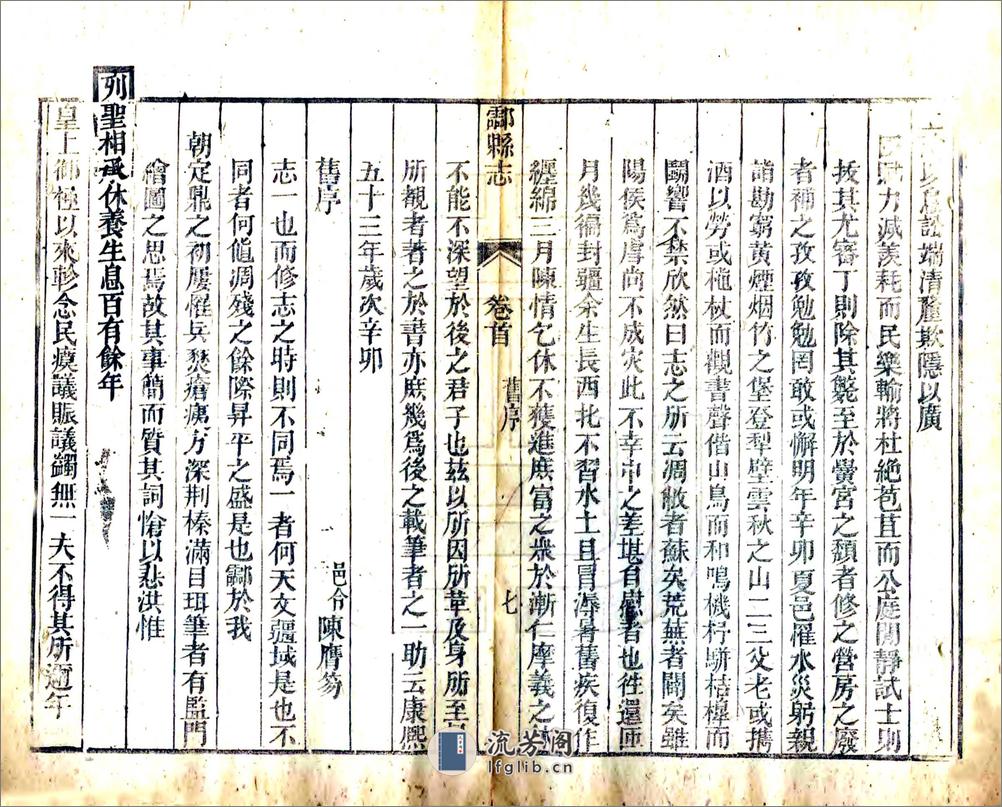 以息訟端清釐欺隱以廣
力減羨耗而民樂輸將杜絕苞苴而公庭閒靜試士則
拔其尤審丁則除其斃至於黌宮之頹者修之營房之廢
者補之孜孜勉勉罔敢或懈明年辛卯夏邑罹水災躬親
踏勘窮黃煙烟竹之堡登犁壁雲秋之山二三父老或携
酒以勞或柂杖而觀書聲偕山鳥而和鳴機杼駢桔槹而
鬬響不禁欣然曰志之所云凋敝者蘇矣荒蕪者闢矣雖
陽侯爲虐尚不成灾此不幸中之差堪自慰者也徃還匝
月幾徧封疆余生長西北不習水土且冒溽暑舊疾復作
纏綿三月陳情乞休不獲進庶富之衆於漸仁摩義之
不能不深望於後之君子也兹以所因所革及身所至
所覩者著之於書亦庶幾爲後之載筆者之一助云康熙
五十三年歲次辛卯
酃縣志 卷首 舊序 七
舊序 邑令陳膺笏
志一也而修志之時則不同焉一者何天文疆域是也不
同者何値凋殘之餘際昇平之盛是也酃於我
朝定鼎之初屢罹兵燹瘡痍方深荆榛滿目珥筆者有監門
繪圖之思焉故其事簡而質其詞愴以悲洪惟
列聖相承休養生息百有餘年
皇上御極以來軫念民瘼議賑議蠲無一夫不得其所邇年
流芳阁
lfglib.cn